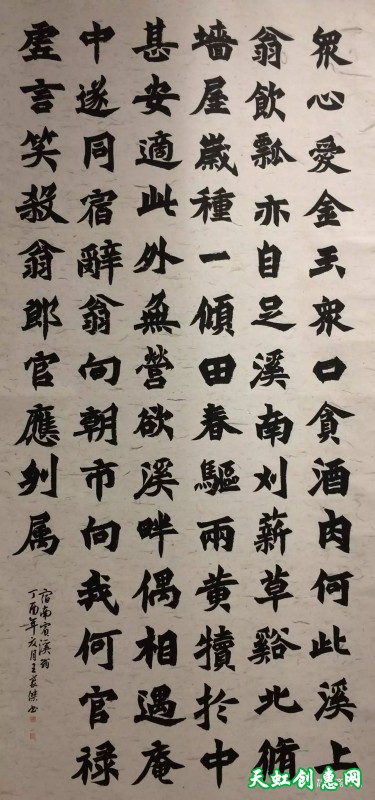 衆心愛金玉衆口貪酒肉何此溪上
翁飲瓢亦自足溪南刈薪草谿北脩
墻屋歲種一傾田春驅兩黃犢於中
甚安適此外無營欲溪畔偶相遇庵
中遂同宿辭翁向朝市向我何官祿
虛言笑殺翁郎官應列属
宿南賓溪翁
丁酉年月王書
天虹创惠网